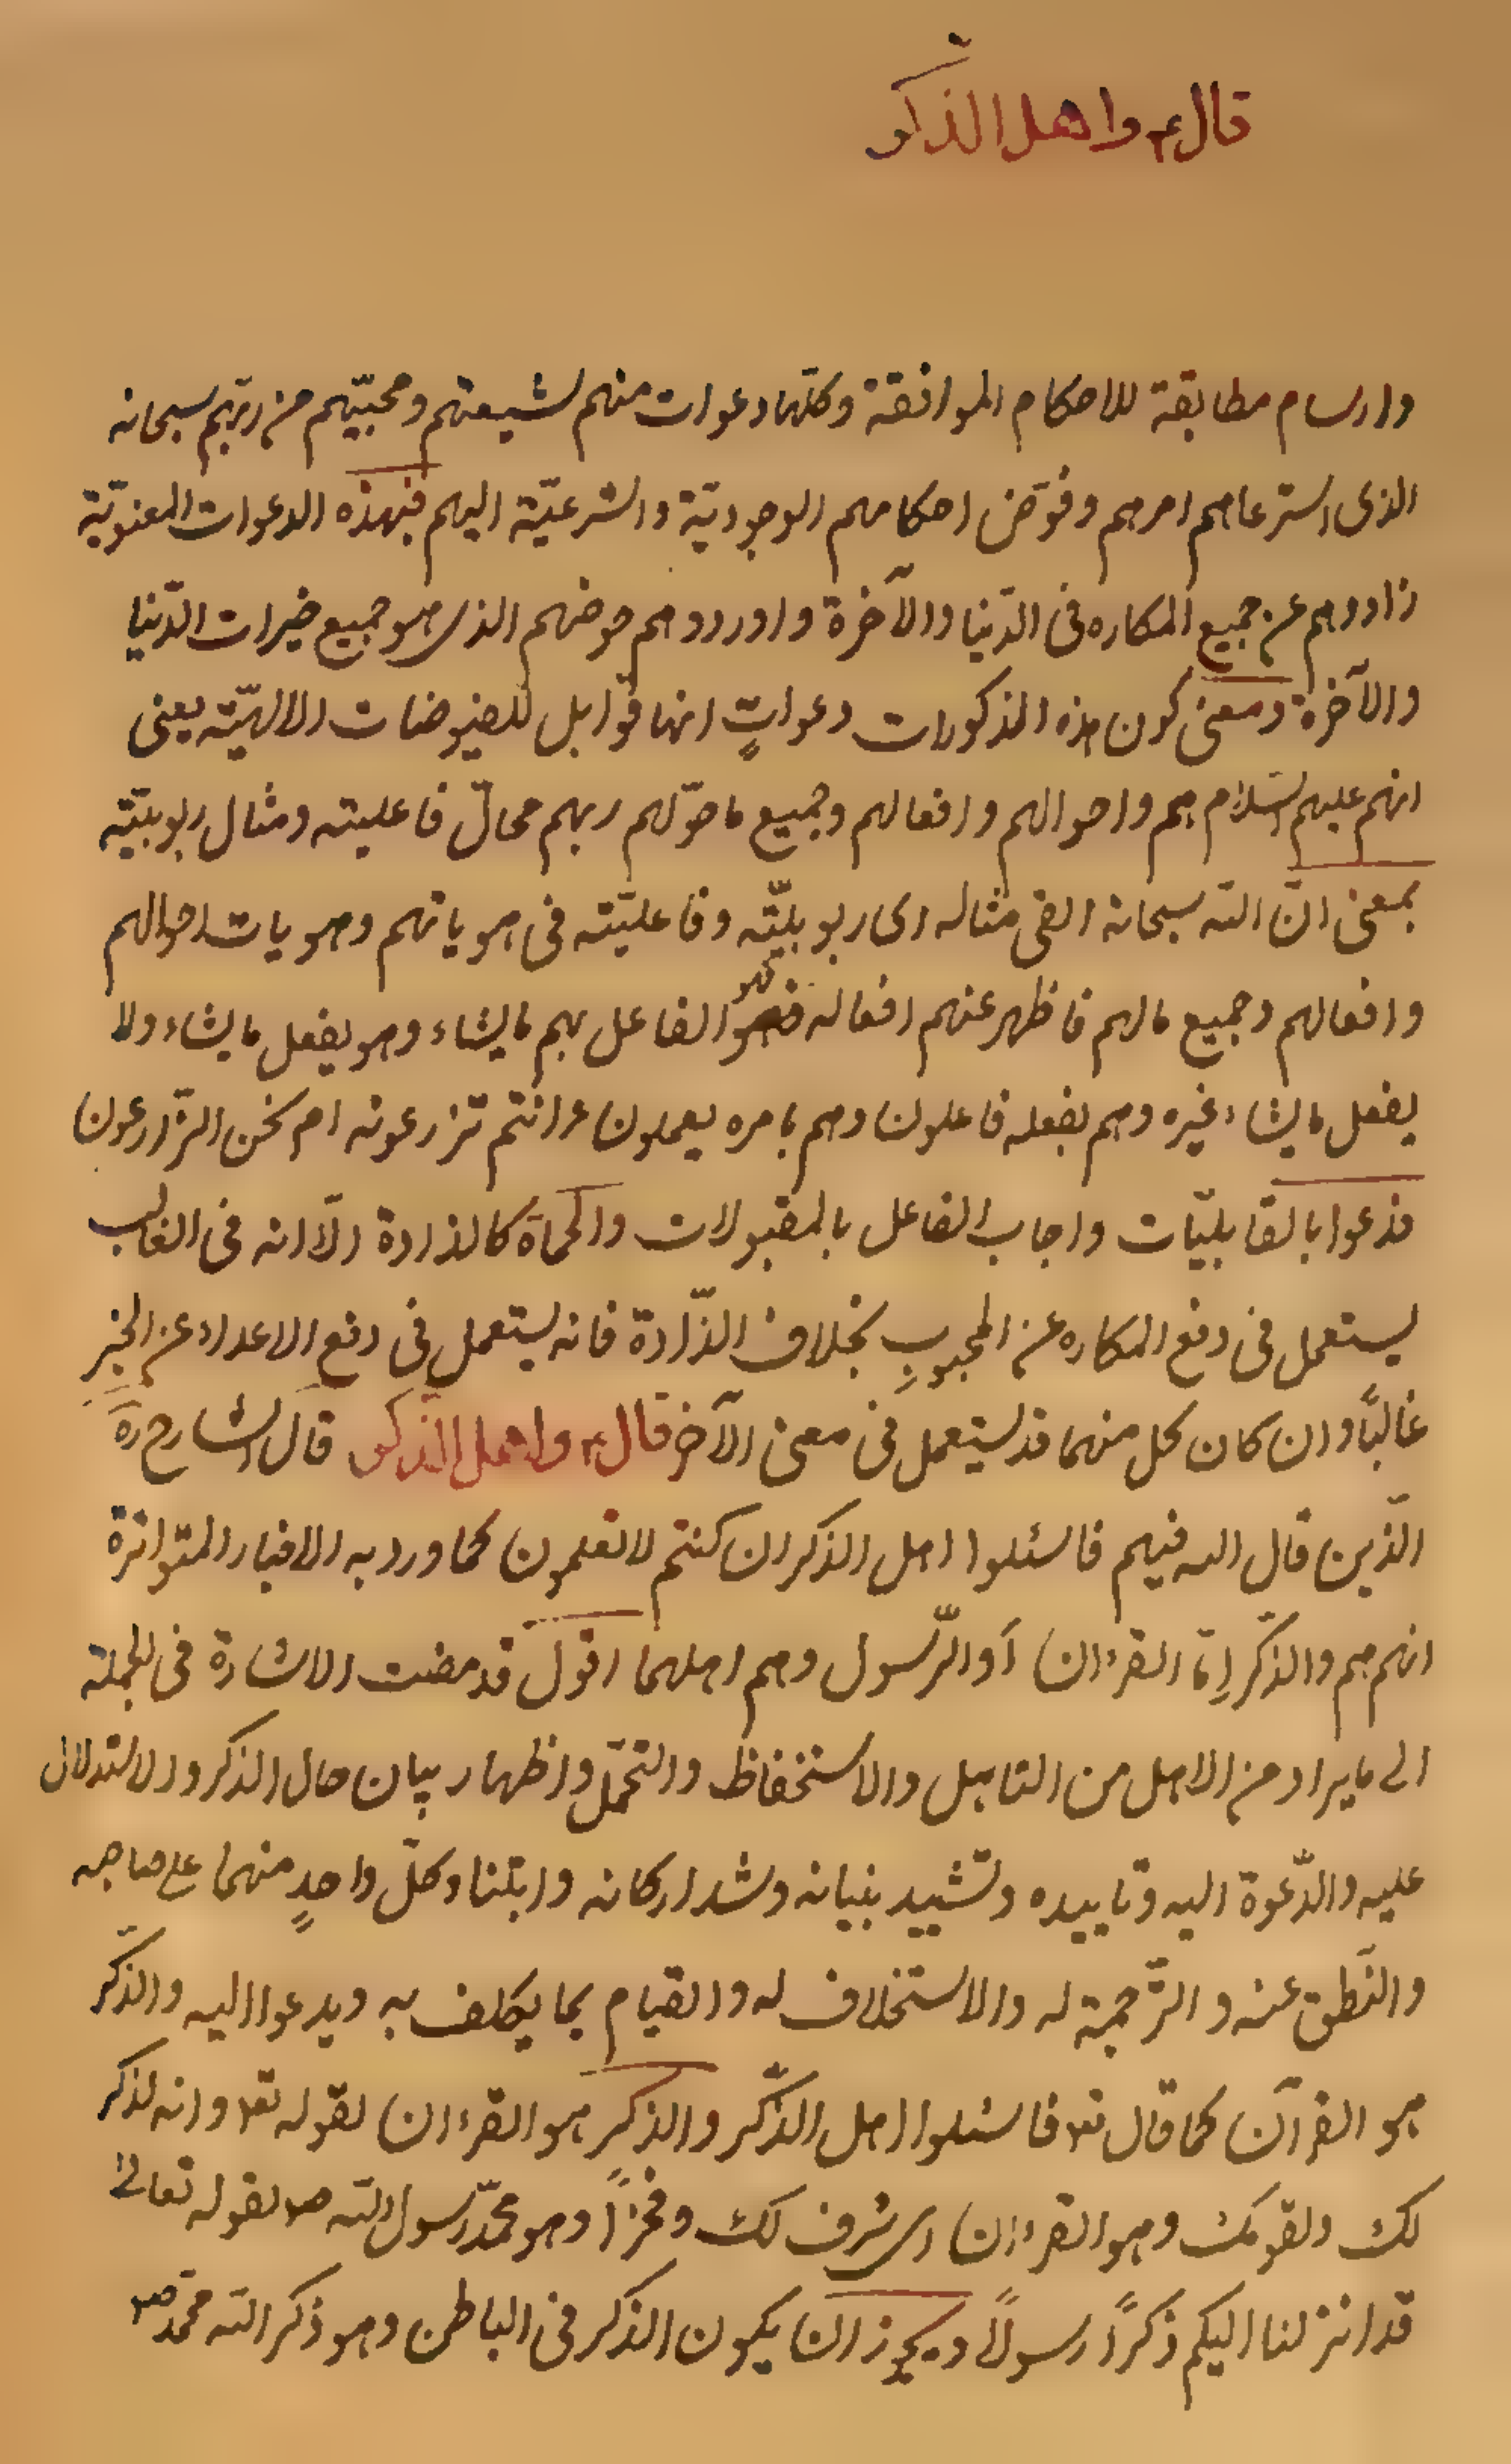 قال ع واهل الذكر
وارسام مطابقة للاحكام الموافقة وكلها دعوات منهم لشيعتهم ومحبّيهم من ربّهم سبحانه
الذى استرعاهم امرهم وفوّض احكامهم الوجوديّة والشرعيّة اليهم فبهذه الدعوات المعنويّة
زادوهم عن جميع المكاره فى الدّنيا والآخرة واوردوهم حوضهم الذى هو جميع خيرات الدّنيا
والآخرة ومعنى كون هذه المذكورات دعواتٍ انها قوابل للفيوضات الالهيّة يعنى
انهم عليهم السّلام هم واحوالهم وافعالهم وجميع ما خوّلهم ربهم محالّ فاعليته ومثال ربوبيّته
بمعنى انّ اللّه سبحانه القى مثاله اى ربوبيّته وفاعليّته فى هوياتهم وهويات احوالهم
وافعالهم وجميع مالهم فاظهر عنهم افعاله فهو الفاعل بهم ما يشاء وهو يفعل ما يشاء ولا
يفعل ما يشاء غيره وهم بفعله فاعلون وهم بامره يعملون ءانتم تزرعونه ام نحن الزّارعون
فدعوا بالقابليّات واجاب الفاعل بالمقبولات والحماة كالذادة الّا انه فى الغالب
يستعمل فى دفع المكاره عن المحبوبِ بخلاف الذّادة فانه يستعمل فى دفع الاعداء عن الخيرِ
غالبًا وان كان كل منهما قد يستعمل فى معنى الآخر قال ع واهل الذّكر قال الشارح ره
الّذين قال الله فيهم فاسئلوا اهل الذكر ان كنتم لا تعلمون كما ورد به الاخبار المتواترة
انهم هم والذّكر اِمّا القرءان اَو الرّسول وهم اهلهما اقول قد مضت الاشارة فى الجملة
الى ما يراد من الاهل من التاهل والاستحفاظ والتحمّل واظهار بيان حال الذكر والاستدلال
عليه والدّعوة اليه وتاييده وتشييد بنيانه وشد اركانه وابتناء كلّ واحدٍ منهما على صاحبه
والنّطق عنه والتّرجمة له والاستخلاف له والقيام بما يكلف به ويدعوا اليه والذّكر
هو القرآن كما قال تع فاسئلوا اهل الذّكر والذكر هو القرءان لقوله تع وانه لذكر
لك ولقومك وهو القرءان اى شرف لك وفخرًا وهو محمّد رسول اللّه ص لقوله تعالى
قد انزلنا اليكم ذكرًا رسولًا ويجوز ان يكون الذكر فى الباطن وهو ذكر اللّه محمّد ص